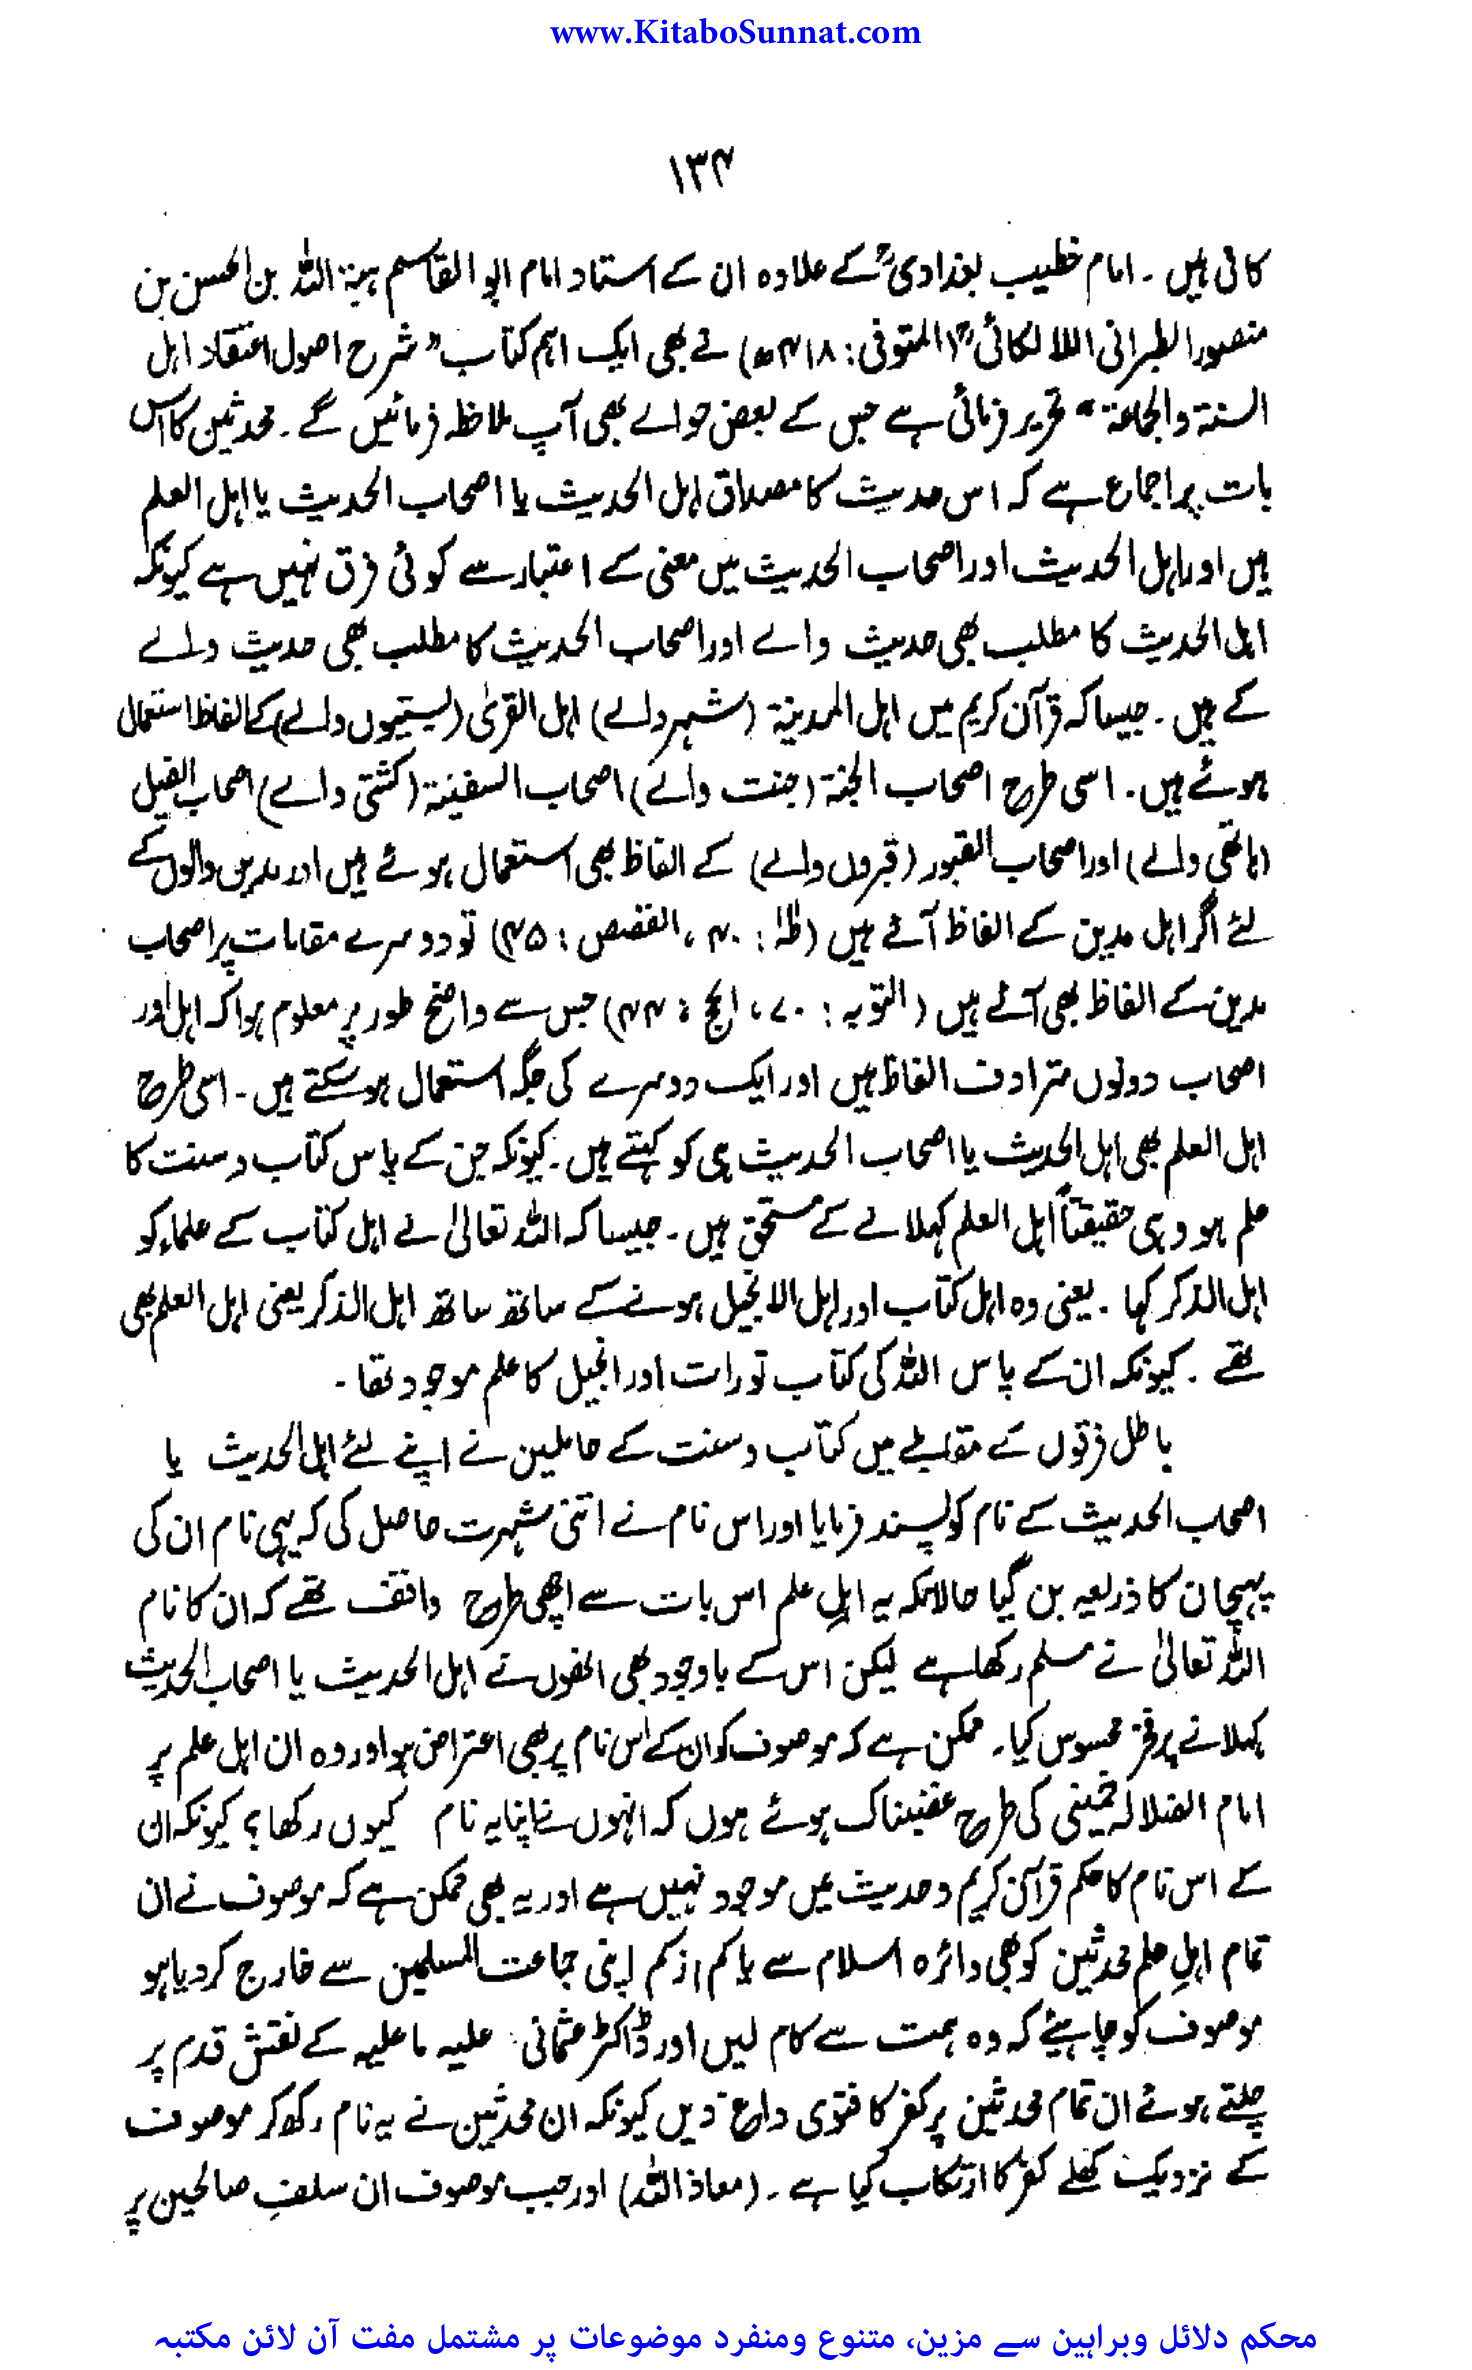 www.KitaboSunnat.com
۱۳۴
کافی ہیں ۔ امام خطیب بغدادیؒ کے علاوہ ان کے استاد امام ابو القاسم ہبۃ اللہ بن الحسن بن
منصور الطبرانی اللالکائیؒ (المتوفی : ۴۱۸ھ) نے بھی ایک اہم کتاب "شرح اصول اعتقاد اہل
السنۃ والجماعۃ" تحریر فرمائی ہے جس کے بعض حوالے بھی آپ ملاحظہ فرمائیں گے ۔ محدثین کا اس
بات پر اجماع ہے کہ اس حدیث کا مصداق اہل الحدیث یا اصحاب الحدیث یا اہل العلم
ہیں اور اہل الحدیث اور اصحاب الحدیث میں معنی کے اعتبار سے کوئی فرق نہیں ہے کیونکہ
اہل الحدیث کا مطلب بھی حدیث والے اور اصحاب الحدیث کا مطلب بھی حدیث والے
کے ہیں ۔ جیسا کہ قرآن کریم میں اہل المدینۃ (شہر والے) اہل القریٰ (بستیوں والے) کے الفاظ استعمال
ہوئے ہیں ۔ اسی طرح اصحاب الجنۃ (جنت والے) اصحاب السفینۃ (کشتی والے) اصحاب الفیل
(ہاتھی والے) اور اصحاب القبور (قبروں والے) کے الفاظ بھی استعمال ہوئے ہیں اور مدین والوں کے
لئے اگر اہل مدین کے الفاظ آئے ہیں (طٰہٰ : ۴۰ ، القصص : ۴۵) تو دوسرے مقامات پر اصحاب
مدین کے الفاظ بھی آئے ہیں (التوبہ : ۷۰ ، الحج : ۴۴) جس سے واضح طور پر معلوم ہوا کہ اہل اور
اصحاب دونوں مترادف الفاظ ہیں اور ایک دوسرے کی جگہ استعمال ہو سکتے ہیں ۔ اسی طرح
اہل العلم بھی اہل الحدیث یا اصحاب الحدیث ہی کو کہتے ہیں ۔ کیونکہ جن کے پاس کتاب و سنت کا
علم ہو وہی حقیقتاً اہل العلم کہلانے کے مستحق ہیں ۔ جیسا کہ اللہ تعالیٰ نے اہل کتاب کے علماء کو
اہل الذکر کہا ۔ یعنی وہ اہل کتاب اور اہل الانجیل ہونے کے ساتھ ساتھ اہل الذکر یعنی اہل العلم بھی
تھے ۔ کیونکہ ان کے پاس اللہ کی کتاب تورات اور انجیل کا علم موجود تھا ۔
باطل فرقوں کے مقابلے میں کتاب و سنت کے حاملین نے اپنے لئے اہل الحدیث یا
اصحاب الحدیث کے نام کو پسند فرمایا اور اس نام نے اتنی شہرت حاصل کی کہ یہی نام ان کی
پہچان کا ذریعہ بن گیا حالانکہ یہ اہلِ علم اس بات سے اچھی طرح واقف تھے کہ ان کا نام
اللہ تعالیٰ نے مسلم رکھا ہے لیکن اس کے باوجود بھی انھوں نے اہل الحدیث یا اصحاب الحدیث
کہلانے پر فخر محسوس کیا ۔ ممکن ہے کہ موصوف کو ان کے اس نام پر بھی اعتراض ہو اور وہ ان اہل علم پر
امام الضلالہ خمینی کی طرح غضبناک ہوئے ہوں کہ انہوں نے اپنا یہ نام کیوں رکھا ؟ کیونکہ ان
کے اس نام کا حکم قرآن کریم و حدیث میں موجود نہیں ہے اور یہ بھی ممکن ہے کہ موصوف نے ان
تمام اہلِ علم محدثین کو بھی دائرہ اسلام سے یا کم از کم اپنی جماعت المسلمین سے خارج کر دیا ہو
موصوف کو چاہیئے کہ وہ ہمت سے کام لیں اور ڈاکٹر عثمانی علیہ ما علیہ کے نقش قدم پر
چلتے ہوئے ان تمام محدثین پر کفر کا فتوی داغ دیں کیونکہ ان محدثین نے یہ نام رکھ کر موصوف
کے نزدیک کھلے کفر کا ارتکاب کیا ہے ۔ (معاذ اللہ) اور جب موصوف ان سلفِ صالحین پر
محکم دلائل وبراہین سے مزین، متنوع ومنفرد موضوعات پر مشتمل مفت آن لائن مکتبہ